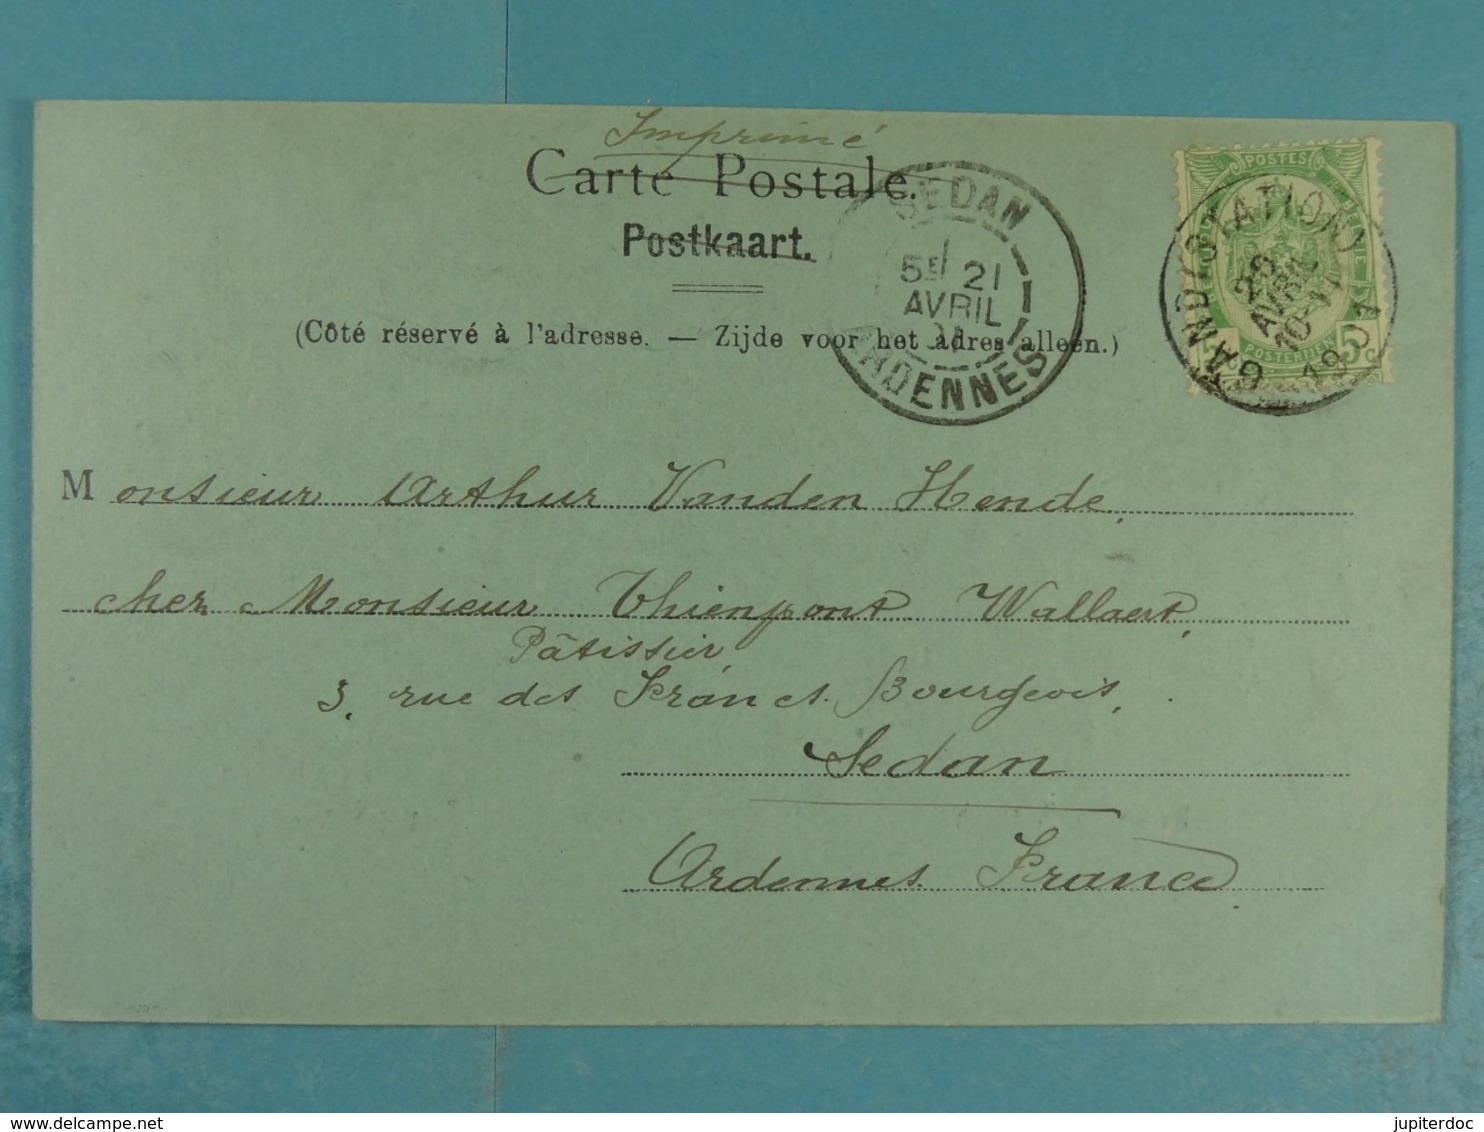 Imprimé
Carte Postale.
Postkaart.
(Côté réservé à l'adresse. — Zijde voor het adres alleen.)
SEDAN
5E 21
AVRIL
01
ARDENNES
POSTES
POSTERIJEN
5 c
GAND (STATION)
20
AVRIL
10-M
1901
Monsieur Arthur Vanden Hende,
chez Monsieur Thienpont Wallaert,
Pâtissier,
3, rue des Francs. Bourgeois,
Sedan
Ardennes France
delcampe.net
jupiterdoc